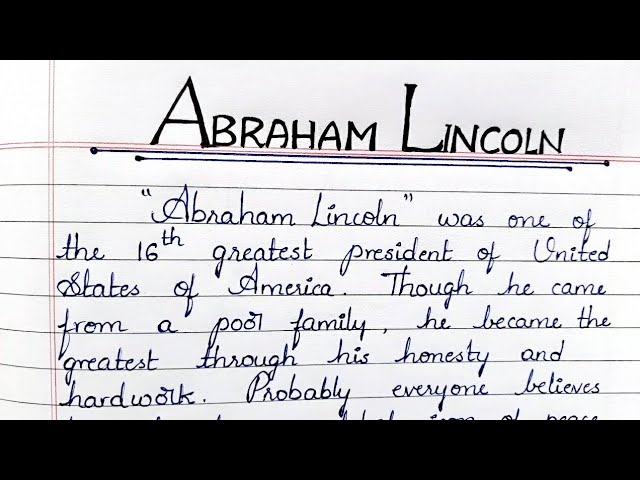 ABRAHAM LINCOLN
"Abraham Lincoln" was one of
the 16th greatest president of United
States of America. Though he came
from a poor family, he became the
greatest through his honesty and
hardwork. Probably everyone believes
of peace